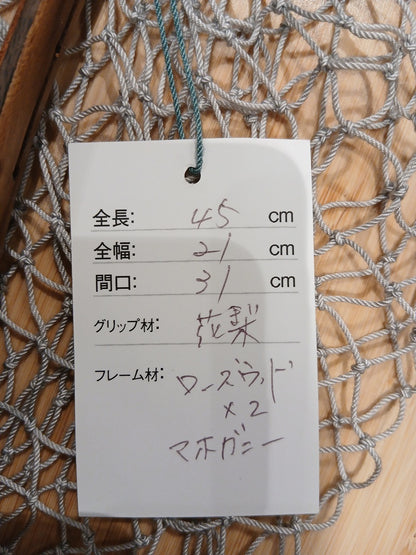 全長: 45 cm
全幅: 21 cm
間口: 31 cm
グリップ材: 花梨
フレーム材: ローズウッド
×2
マホガニー